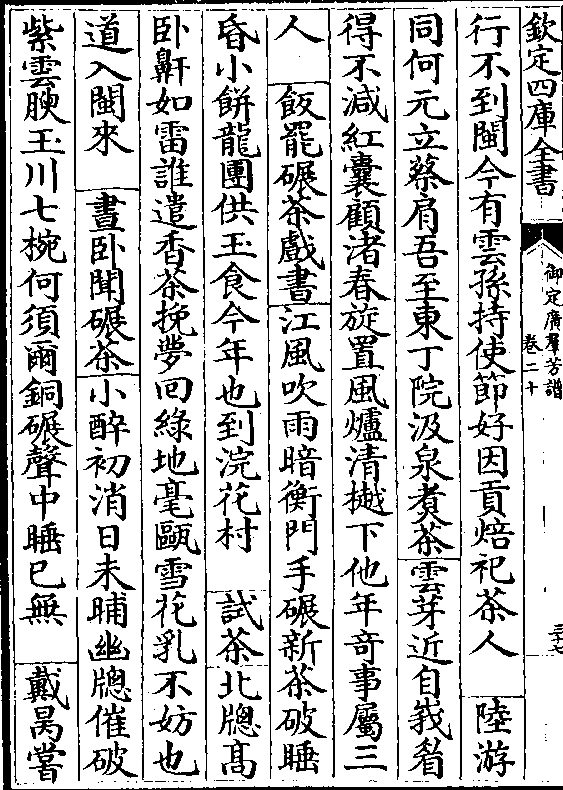 欽定四庫全書
御定廣羣芳譜
卷二十
三十七
行不到閩今有雲孫持使節好因貢焙祀茶人 陸游
同何元立蔡肩吾至東丁院汲泉煮茶 雲芽近自峩眉
得不減紅囊顧渚春旋置風爐清樾下他年奇事屬三
人 飯罷碾茶戲書 江風吹雨暗衡門手碾新茶破睡
昏小餅龍團供玉食今年也到浣花村 試茶 北牕髙
卧鼾如雷誰遣香茶挽夢回綠地毫甌雪花乳不妨也
道入閩來 晝卧聞碾茶 小醉初消日未晡幽牕催破
紫雲腴玉川七椀何須爾銅碾聲中睡已無 戴昺嘗